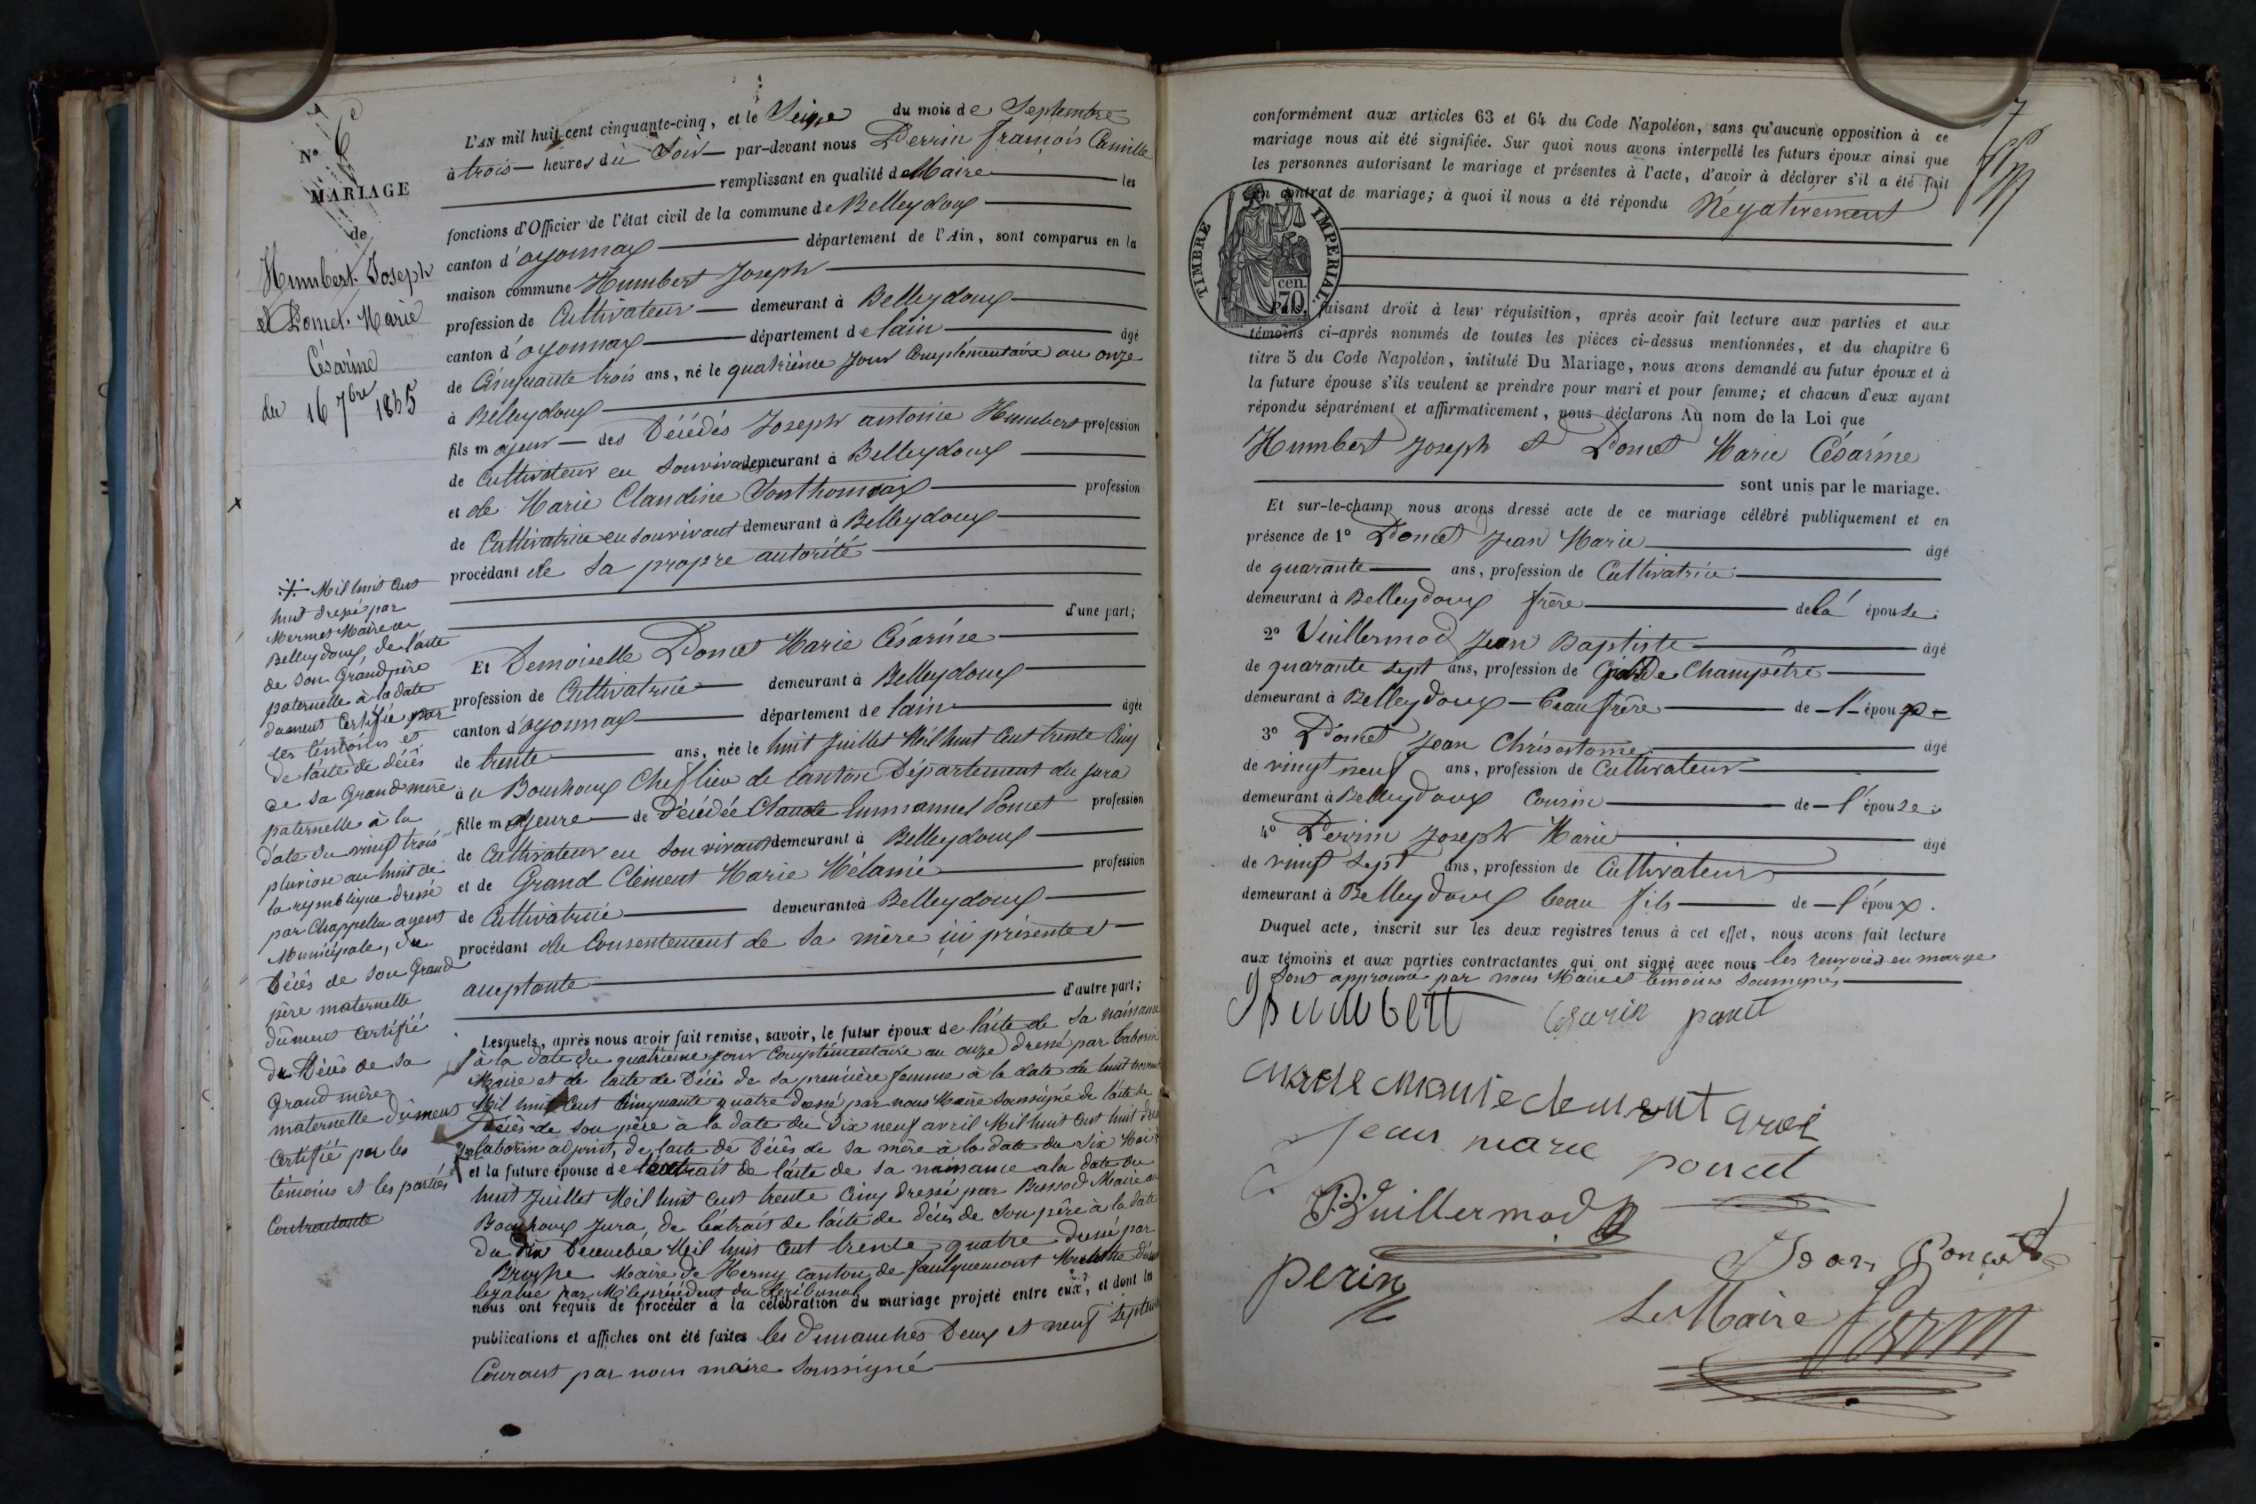 N° 6e
MARIAGE
de
Humbert Joseph
et Poncet Marie
Césarine
du 16 7bre 1855
L'AN mil huit cent cinquante-cinq, et le Seize du mois de Septembre
à trois heures du Soir par-devant nous Perrin françois Camille
remplissant en qualité de Maire les
fonctions d'Officier de l'état civil de la commune de Belleydoux
canton d'oyonnax département de l'Ain, sont comparus en la
maison commune Humbert Joseph
profession de Cultivateur demeurant à Belleydoux
canton d'oyonnax département de lain âgé
de Cinquante trois ans, né le quatrième jour Complémentaire an onze
à Belleydoux
fils majeur des Décédés Joseph antoine Humbert profession
de Cultivateur en Souvivant demeurant à Belleydoux
et de Marie Claudine profession
de Cultivatrice en souvivant demeurant à Belleydoux
procédant de Sa propre autorité
d'une part;
Et Demoiselle Poncet Marie Césarine
profession de Cultivatrice demeurant à Belleydoux
canton d'oyonnax département de lain âgée
de trente ans, née le huit Juillet Mil huit Cent trente Cinq
à u Bouchoux Chef lieu de Canton Département du Jura
fille majeure de Décédée Claude Emmanuel Poncet profession
de Cultivateur en Son vivant demeurant à Belleydoux
et de Grand Clément Marie Mélanie profession
de Cultivatrice demeurante à Belleydoux
procédant du Consentement de Sa mère ici présente et
acceptante
d'autre part;
Lesquels, après nous avoir fait remise, savoir, le futur époux de l'acte de Sa naissance
à la date du quatrième jour Complémentaire an onze dressé par Taborin
Maire et de l'acte de Décès de Sa première femme à la date du huit
Mil huit Cent Cinquante quatre dressé par nous Maire Soussigné de l'acte de
Décès de Son père à la date du Dix neuf avril Mil huit Cent huit
Taborin adjoint, de l'acte de Décès de Sa mère à la date du Six Mai
et la future épouse de l'extrait de l'acte de Sa naissance a la date du
huit Juillet Mil huit Cent trente Cinq dressé par Maire au
Bouchoux Jura, de l'extrait de l'acte de décès de Son père à la date
du Dix Décembre Mil huit Cent trente quatre dressé par
Maire de Herny Canton de faulquemont Moselle
légalisé par M. le président du Tribunal
nous ont requis de procéder à la célébration du mariage projeté entre eux, et dont les
publications et affiches ont été faites les Dimanches Deux et neuf Septembre
Courant par nous maire Soussigné
Mil huit Cent
huit dressé par
Mermet Maire de
Belleydoux, de l'acte
de Son Grand père
paternelle à la date
dument Certifié par
les témoins et
de l'acte de décès
de Sa Grand mère
paternelle à la
date du vingt trois
pluviose an huit de
la republique dressé
par Chappelu agent
Municipale, du
Décès de Son Grand
père maternelle
dûment Certifié
du Décès de Sa
Grand mère
maternelle dûment
Certifié par les
témoins et les parties
Contractante
conformément aux articles 63 et 64 du Code Napoléon, sans qu'aucune opposition à ce
mariage nous ait été signifiée. Sur quoi nous avons interpellé les futurs époux ainsi que
les personnes autorisant le mariage et présentes à l'acte, d'avoir à déclarer s'il a été fait
un contrat de mariage; à quoi il nous a été répondu Négativement
TIMBRE IMPERIAL
cen.
70
Puis, faisant droit à leur réquisition, après avoir fait lecture aux parties et aux
témoins ci-après nommés de toutes les pièces ci-dessus mentionnées, et du chapitre 6
titre 5 du Code Napoléon, intitulé Du Mariage, nous avons demandé au futur époux et à
la future épouse s'ils veulent se prendre pour mari et pour femme; et chacun d'eux ayant
répondu séparément et affirmativement, nous déclarons Au nom de la Loi que
Humbert Joseph et Poncet Marie Césarine
sont unis par le mariage.
Et sur-le-champ nous avons dressé acte de ce mariage célébré publiquement et en
présence de 1° Poncet Jean Marie âgé
de quarante ans, profession de Cultivatrice
demeurant à Belleydoux frère de la épouse.
2° Vuillermod Jean Baptiste âgé
de quarante sept ans, profession de Garde Champêtre
demeurant à Belleydoux Beau frère de l'époux
3° Poncet Jean Chrisostome âgé
de vingt neuf ans, profession de Cultivateur
demeurant à Belleydoux Cousin de l'épouse.
4° Perrin Joseph Marie âgé
de vingt Sept ans, profession de Cultivateur
demeurant à Belleydoux beau fils de l'époux.
Duquel acte, inscrit sur les deux registres tenus à cet effet, nous avons fait lecture
aux témoins et aux parties contractantes qui ont signé avec nous les renvoies en marge
Sont approuvé par nous Maire et témoins Soussignés
humbert
Marie clement
Jean marie poncet
B Vuillermod
Jean Poncet
perin
Le Maire Perrin